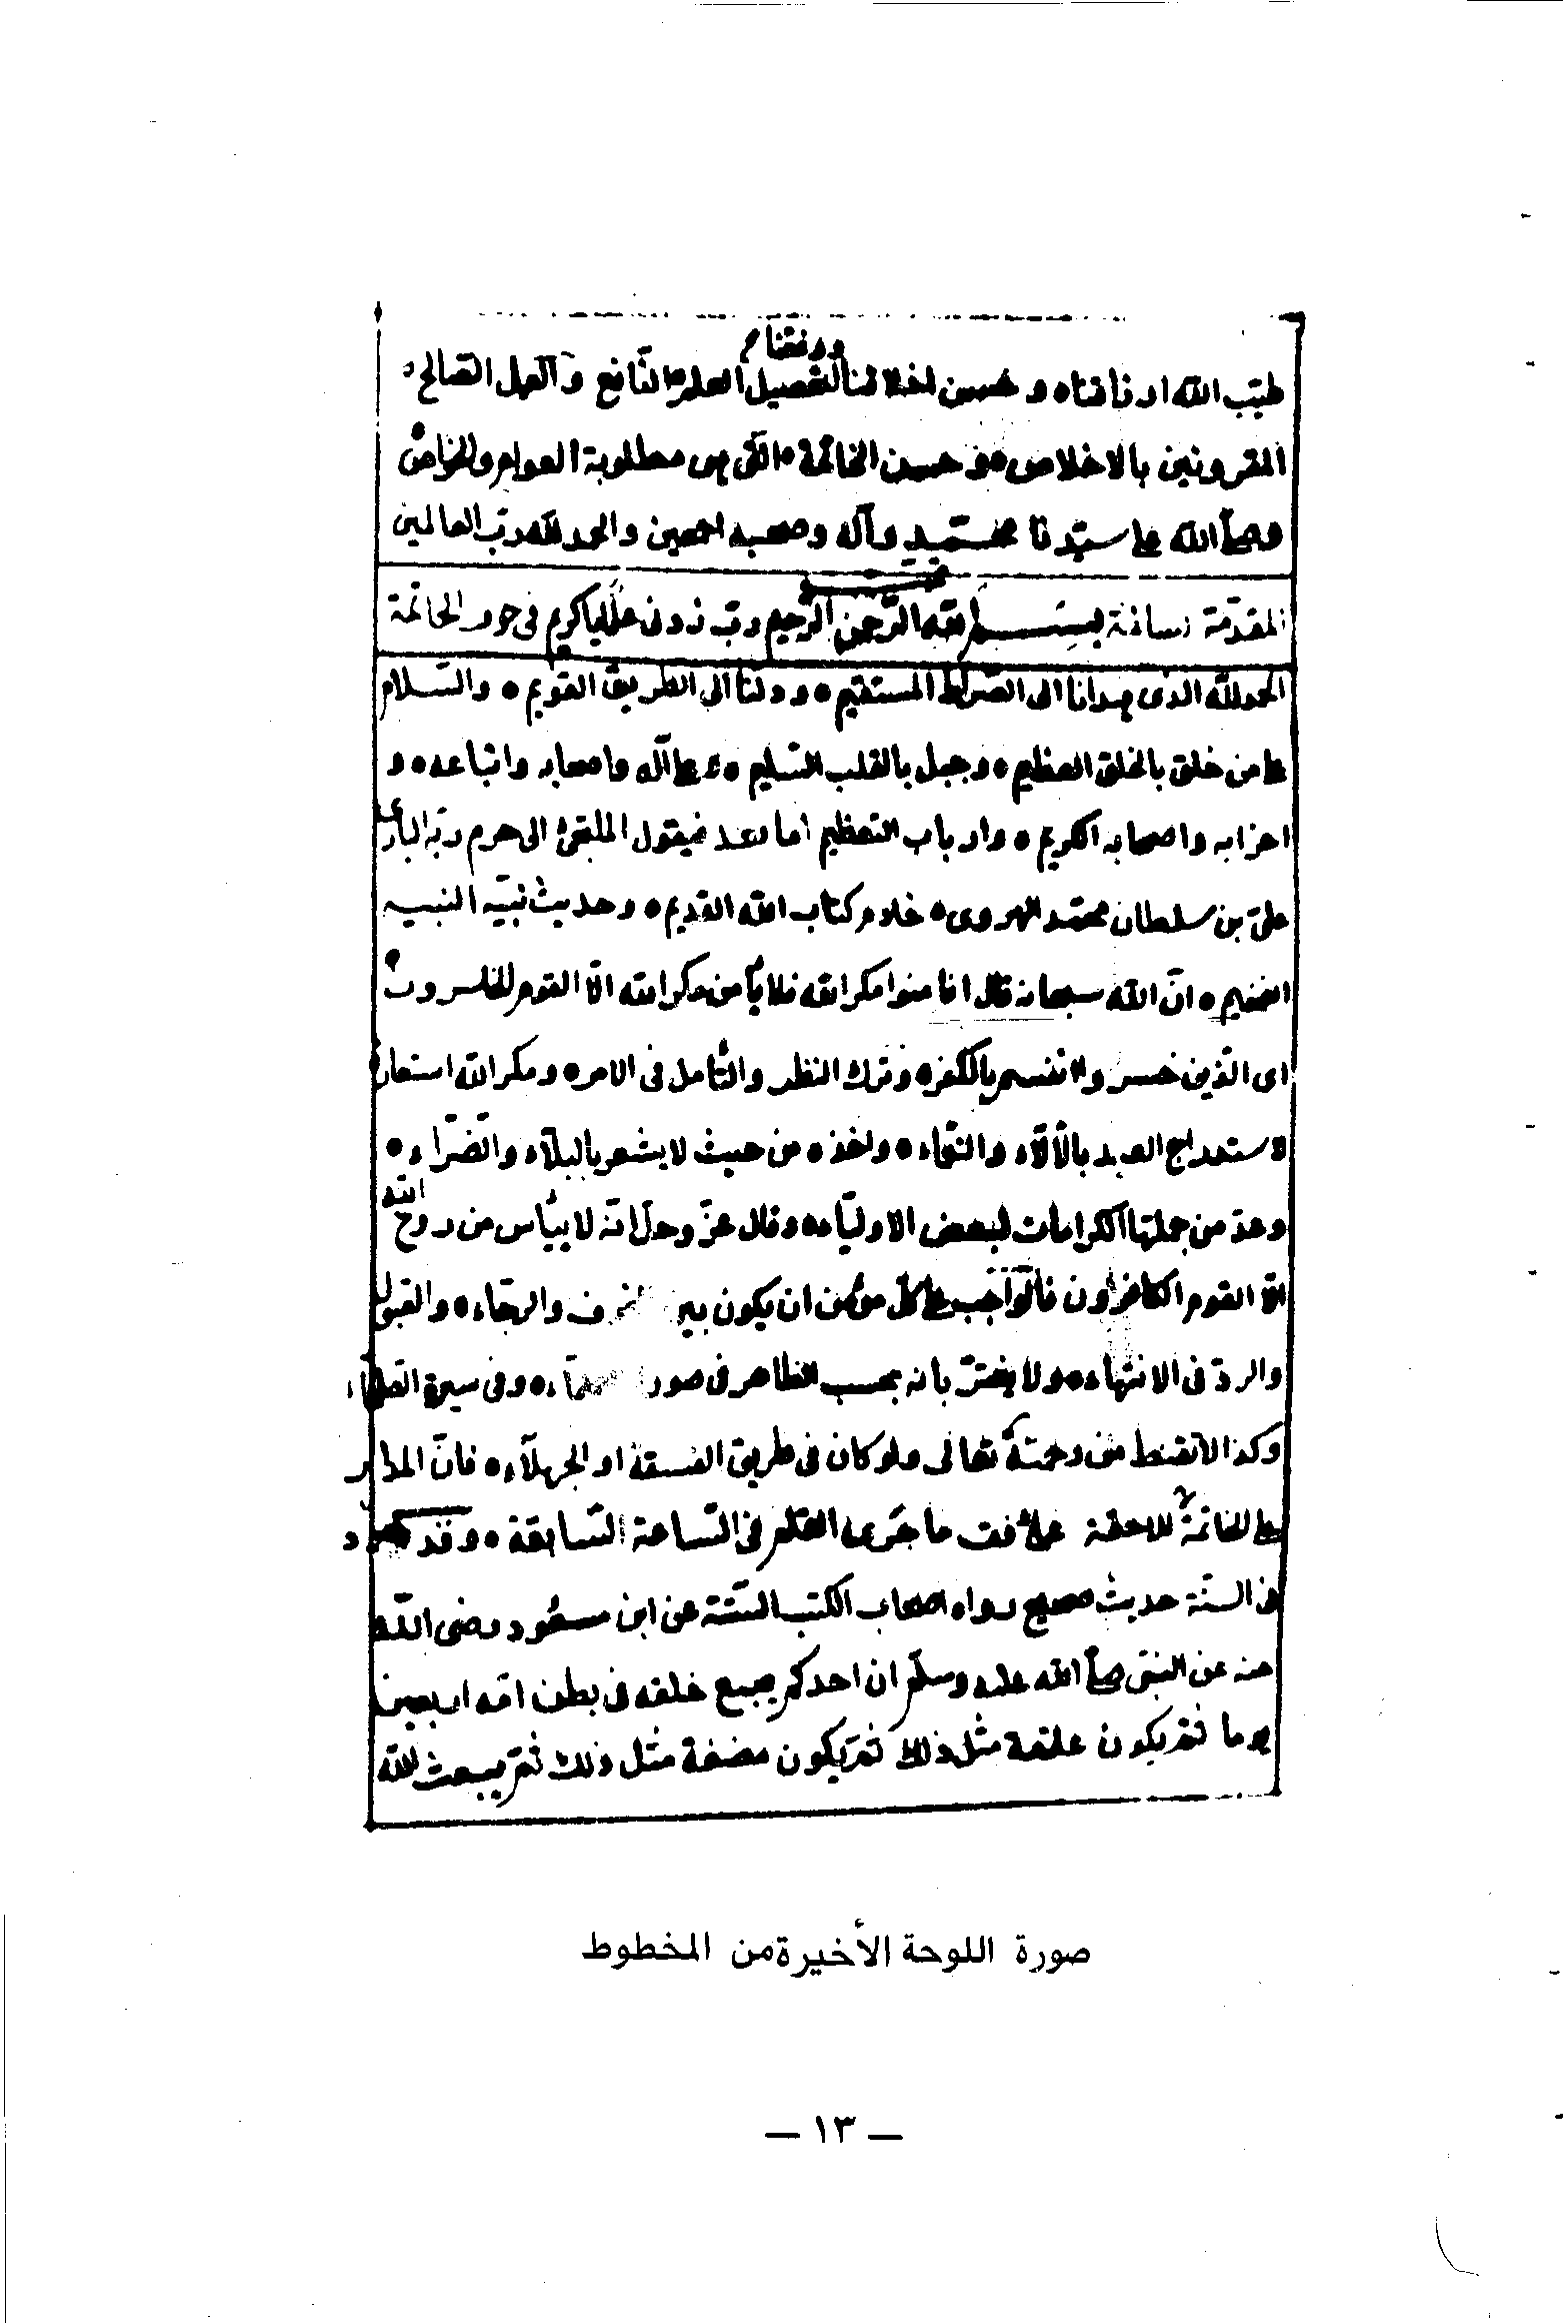 ووفقنا
طيّب الله اوقاتنا و حسن اخلاقنا لتحصيل العلم النّافع و العمل الصّالح
المقرونين بالاخلاص و حسن الخاتمة التى هى مطلوبة العوام والخواص
وصلى الله على سيّدنا محمّد وآله وصحبه اجمعين والحمد لله ربّ العالمين
المقدّمة بسم الله الرّحمن الرّحيم ربّ زدنى علما يا كريم فى خوف الخاتمة
الحمد لله الذى هدانا الى الصّراط المستقيم ودلّنا الى الطريق القويم والسّلام
على من خلق بالخلق العظيم وجبل بالقلب السّليم وعلى آله واصحابه واتباعه و
احزابه واصحابه الكريم وارباب التعظيم اما بعد فيقول الملتجئ الى حرم ربّه البارى
علىّ بن سلطان محمّد الهروى خادم كتاب الله القديم وحديث نبيّه النبيه
الفخيم انّ الله سبحانه قال افامنوا مكر الله فلا يأمن مكر الله الّا القوم الخاسرون
اى الذّين خسروا انفسهم بالكفر وترك النظر والتّامل فى الامر ومكر الله استعارة
لاستدراج العبد بالآلآء والنّعماء واخذه من حيث لا يشعر بالبلآء والضّرّاء
وعدّ من جملتها الكرامات لبعض الاوليّاء وقال عزّ وجلّ انّه لا ييأس من روح الله
الّا القوم الكافرون فالواجب على كلّ مؤمن ان يكون بين الخوف والرجّاء والقبول
والردّ فى الانتهاء ولا يغترّ بانه بحسب الظاهر فى صورة العلماء وفى سيرة الصلحاء
وكذا لا تقنط من رحمته تعالى ولو كان فى طريق الفسقة او الجهلآء فانّ المدار
على الخاتمة اللاحقة على وفق ما جرى القلم فى السّاعة السّابقة وقد ورد
فى السنّة حديث صحيح رواه اصحاب الكتب السّتّة عن ابن مسعود رضى الله
عنه عن النبىّ صلى الله عليه وسلّم ان احدكم يجمع خلقه فى بطن امّه اربعين
يوما ثمّ يكون علقة مثل ذلك ثمّ يكون مضغة مثل ذلك ثمّ يبعث الله
صورة اللوحة الأخيرة من المخطوط
— ١٣ —